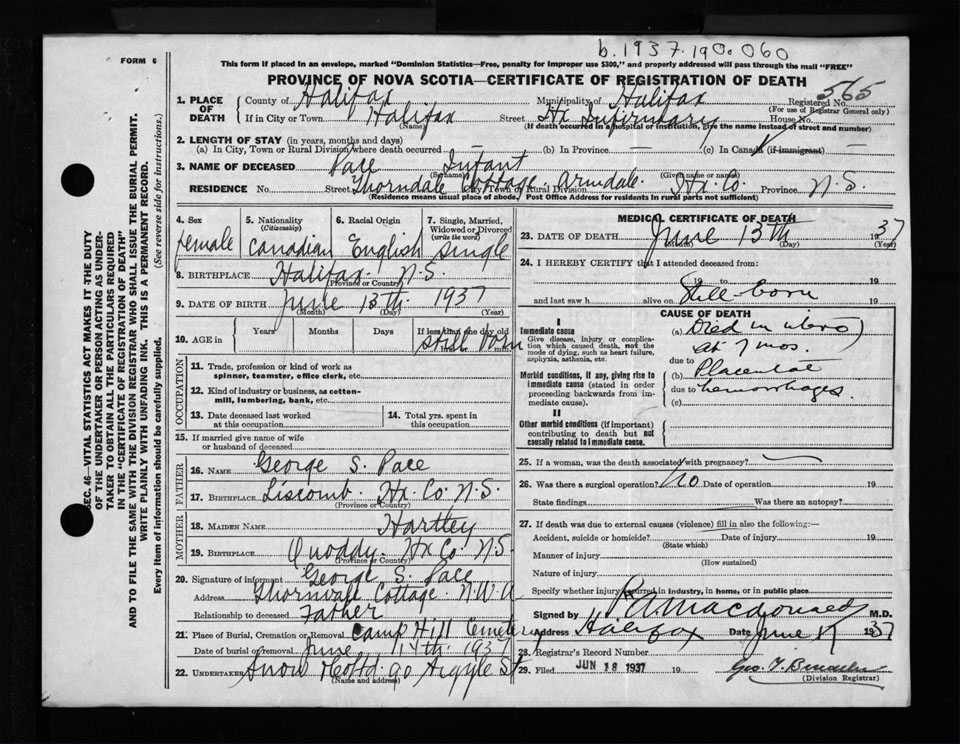 b. 1937. 190. 060
FORM 6
This form if placed in an envelope, marked "Dominion Statistics—Free, penalty for improper use $300," and properly addressed will pass through the mail "FREE"
PROVINCE OF NOVA SCOTIA—CERTIFICATE OF REGISTRATION OF DEATH
1. PLACE OF DEATH County of Halifax Municipality of Halifax Registered No. 565
(For use of Registrar General only)
If in City or Town Halifax Street Hx Infirmary House No.
(Name) (If death occurred in a hospital or institution, give the name instead of street and number)
2. LENGTH OF STAY (in years, months and days)
(a) In City, Town or Rural Division where death occurred — (b) In Province — (c) In Canada (if immigrant) —
3. NAME OF DECEASED Pace Infant
(Surname) (Given name or names)
RESIDENCE No. Street Thorndale Cottage, Armdale. Hx. Co. Province N.S.
City, Town or Rural Division
(Residence means usual place of abode. Post Office Address for residents in rural parts not sufficient)
4. Sex female
5. Nationality (Citizenship) Canadian
6. Racial Origin English
7. Single, Married, Widowed or Divorced (write the word) Single
8. BIRTHPLACE Halifax. N.S.
(Province or Country)
9. DATE OF BIRTH June 13th 1937
(Month) (Day) (Year)
10. AGE in Years Months Days If less than one day old still born
OCCUPATION
11. Trade, profession or kind of work as spinner, teamster, office clerk, etc.
12. Kind of industry or business, as cotton-mill, lumbering, bank, etc.
13. Date deceased last worked at this occupation
14. Total yrs. spent in this occupation
15. If married give name of wife or husband of deceased
FATHER
16. NAME George S. Pace
17. BIRTHPLACE Liscomb. Hx. Co. N.S.
(Province or Country)
MOTHER
18. MAIDEN NAME Hartley
19. BIRTHPLACE Quoddy. Hx Co. N.S.
(Province or Country)
20. Signature of informant George S. Pace
Address Thornvale Cottage. N.W.A
Relationship to deceased Father
21. Place of Burial, Cremation or Removal Camp Hill Cemetery
Date of burial or removal June 14th 1937
22. UNDERTAKER Snow Co Ltd. 90 Argyle St
(Name and address)
MEDICAL CERTIFICATE OF DEATH
23. DATE OF DEATH June 13th 1937
(Month) (Day) (Year)
24. I HEREBY CERTIFY that I attended deceased from:
19 to 19
and last saw h alive on Still-born 19
CAUSE OF DEATH
I
Immediate cause
Give disease, injury, or complication which caused death, not the mode of dying, such as heart failure, asphyxia, asthenia, etc.
(a) Died in utero
at 7 mos.
due to
Morbid conditions, if any, giving rise to immediate cause (stated in order proceeding backwards from immediate cause).
(b) Placental
due to hemorrhages
(c)
II
Other morbid conditions (if important) contributing to death but not causally related to immediate cause.
25. If a woman, was the death associated with pregnancy?
26. Was there a surgical operation? No Date of operation 19
State findings Was there an autopsy?
27. If death was due to external causes (violence) fill in also the following:—
Accident, suicide or homicide? Date of injury 19
(State which)
Manner of injury
(How sustained)
Nature of injury
Specify whether injury occurred in industry, in home, or in public place
Signed by P A Macdonald M.D.
Address Halifax Date June 1937
28. Registrar's Record Number
29. Filed JUN 18 1937 19
(Division Registrar)
SEC. 46—VITAL STATISTICS ACT MAKES IT THE DUTY
OF THE UNDERTAKER OR PERSON ACTING AS UNDER-
TAKER TO OBTAIN ALL THE PARTICULARS REQUIRED
IN THE "CERTIFICATE OF REGISTRATION OF DEATH"
AND TO FILE THE SAME WITH THE DIVISION REGISTRAR WHO SHALL ISSUE THE BURIAL PERMIT.
WRITE PLAINLY WITH UNFADING INK. THIS IS A PERMANENT RECORD.
Every item of information should be carefully supplied. (See reverse side for instructions.)